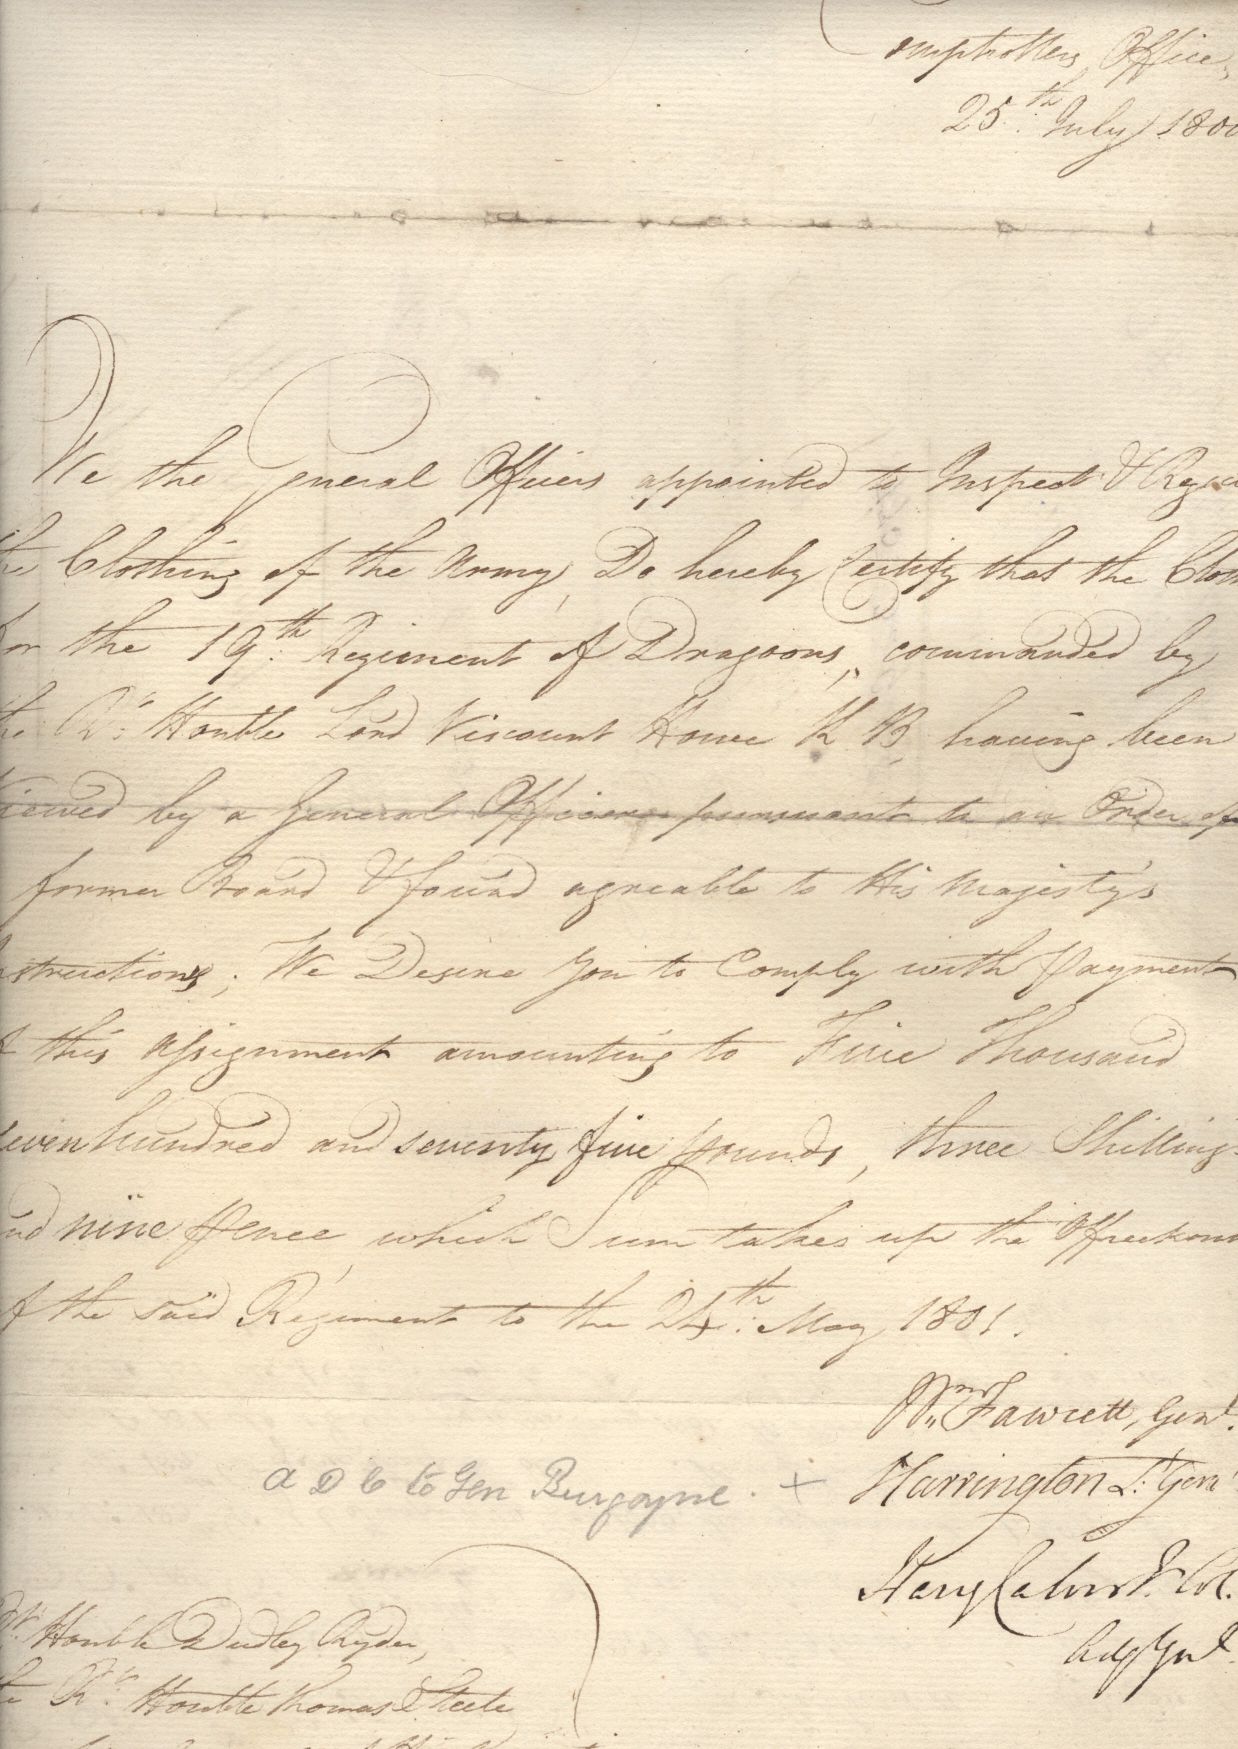 Comptrollers Office,
25th July 180
We the General Officers appointed to Inspect & Reg
the Clothing of the Army, Do hereby Certify that the Cloth
for the 19th Regiment of Dragoons, commanded by
the Rt Honble Lord Viscount Howe K B, having been
Viewed by a General Officer pursuant to an Order of
former Board & found agreable to His Majesty's
structions; We Desire You to Comply with Payment
of this Assignment amounting to Five Thousand
seven hundred and seventy five pounds, three Shillings
and nine Pence, which Sum takes up the Offreckon
of the said Regiment to the 24th May 1801.
Wm Fawcett, Genl.
a D C to Gen Burgoyne. + Harrington Lt Genl
Harry Calvert Col.
Adj Genl
Rt Honble Dudley Ryder,
the Rt Honble Thomas Steele